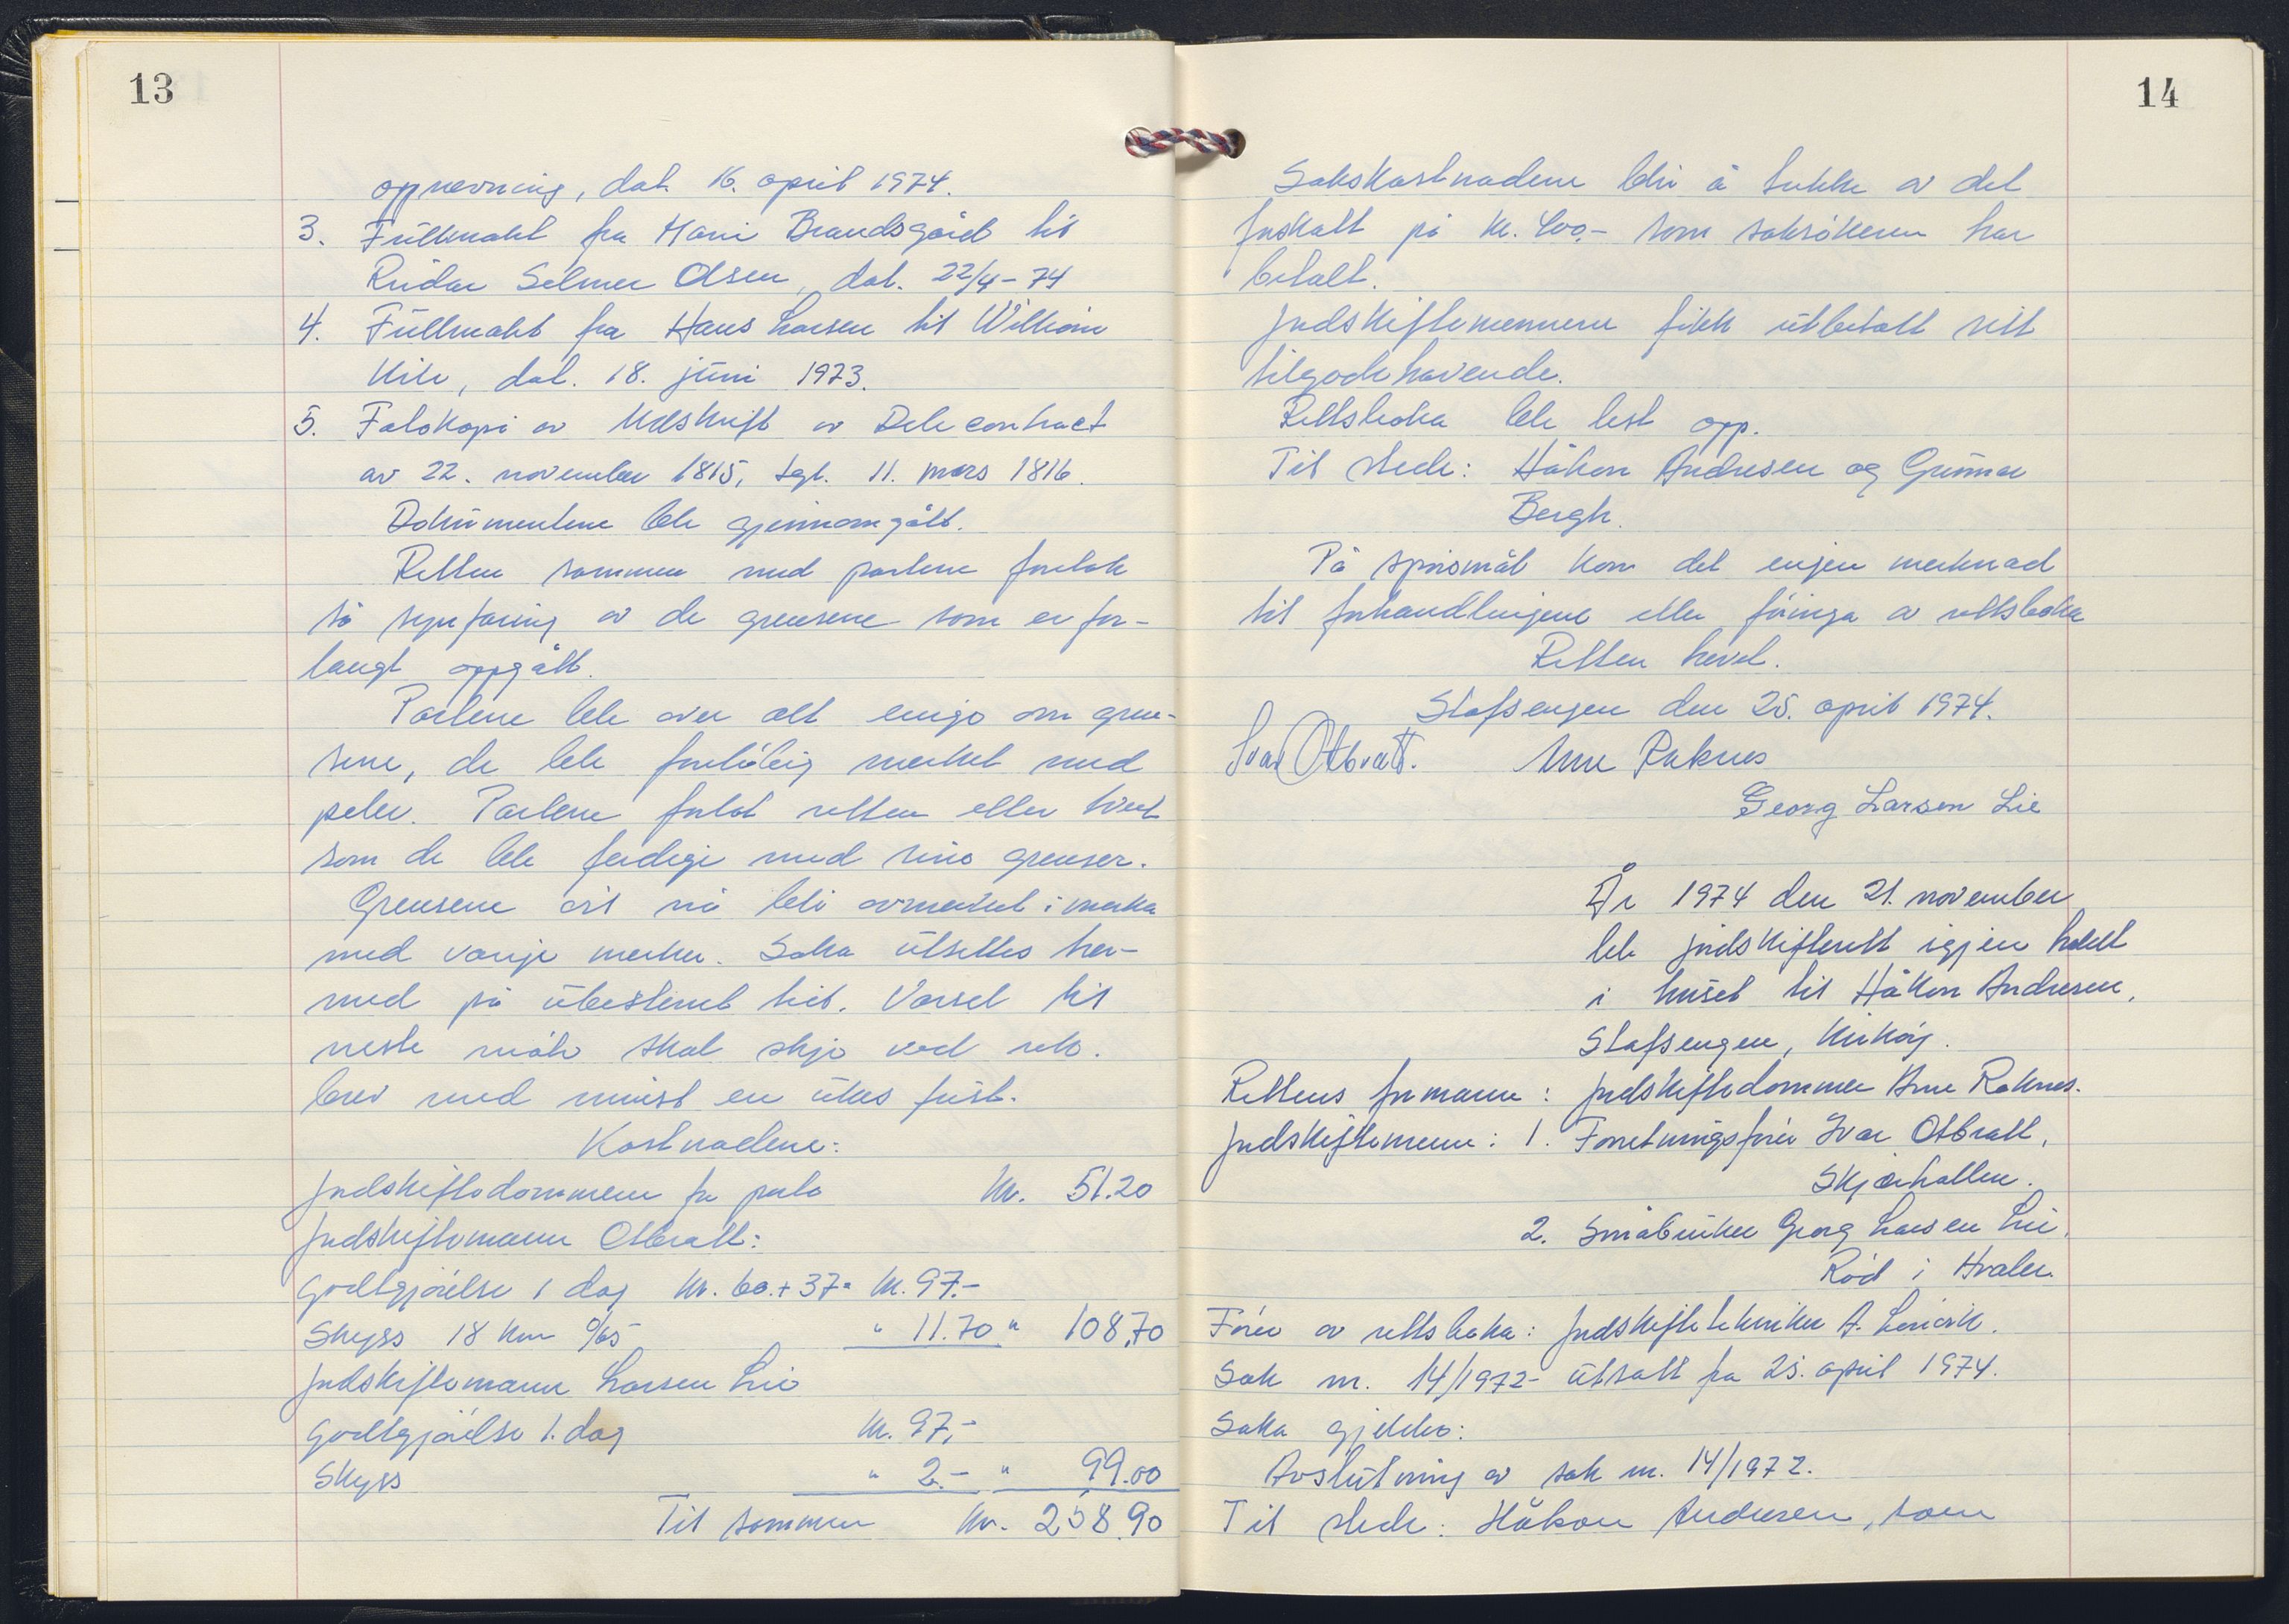 13
oppnevning, dat. 16. april 1974.
3. Fullmakt fra Mari Brandsgård til
Reidar Selmer Olsen, dat. 22/4-74
4. Fullmakt fra Hans Larsen til William
Kile, dat. 18. juni 1973.
5. Fotokopi av Utskrift av Delecontract
av 22. november 1815, tgl. 11. mars 1816.
Dokumentene ble gjennomgått.
Retten sammen med partene foretok
så synfaring av de grensene som er for-
langt oppgått.
Partene ble over alt enige om gren-
sene, de ble foreløbig merket med
peler. Partene forlot retten etter hvert
som de ble ferdige med sine grenser.
Grensene vil nå bli avmerket i marka
med varige merker. Saka utsettes her-
med på ubestemt tid. Varsel til
neste møte skal skje ved rek.
brev med minst en ukes frist.
Kostnadene:
Jordskiftedommeren fr porto kr. 51.20
Jordskiftemann Otbratt:
Godtgjørelse 1 dag kr. 60.+37= kr. 97.-
Skyss 18 km 0/65 " 11.70 " 108,70
Jordskiftemann Larsen Lie
Godtgjørelse 1. dag kr. 97,-
Skyss " 2.- " 99.00
Til sammen kr. 258.90
14
Sakskostnadene blir å trekke av det
forskott på kr. 400,- som saksøkeren har
betalt.
Jordskiftemennene fikk utbetalt sitt
tilgodehavende.
Rettsboka ble lest opp.
Til stede: Håkon Andresen og Gunnar
Bergh.
På spørsmål kom det ingen merknad
til forhandlingene eller føringa av rettsboka
Retten hevet.
Stafsengen den 25. april 1974.
Ivar Otbratt. Arne Raknes
Georg Larsen Lie
År 1974 den 21. november
ble jordskifterett igjen holdt
i huset til Håkon Andresen,
Stafsengen, Kirkøy.
Rettens formann: Jordskiftedommer Arne Raknes.
Jordskiftemenn: 1. Forretningsfører Ivar Otbratt,
Skjærhallen.
2. Småbruker Georg Larsen Lie,
Rød i Hvaler.
Fører av rettsboka: Jordskiftetekniker A.
Sak nr. 14/1972 - utsatt fra 25. april 1974.
Saka gjelder:
Avslutning av sak nr. 14/1972.
Til stede: Håkon Andresen, som